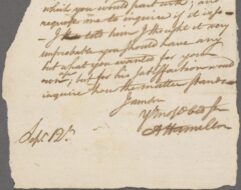 which you would part with; and
requests me to inquire if it is so
I have told him I thought it very
improbable you should have any
but what you wanted for your
but for his satisfaction would
inquire how the matter stands
Yr Obed Ser
A Hamilton
Sepr 12.